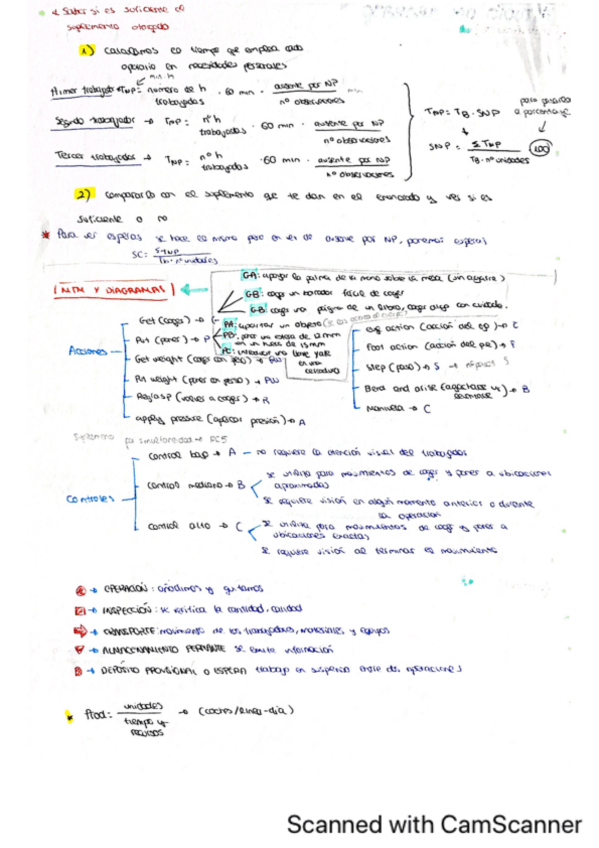 * Saber si es suficiente el
suplemento otorgado
1) calculamos el tiempo que emplea cada
operario en necesidades personales
min. h
Primer trabajador → TNP = número de h trabajadas · 60 min · ausente por NP / nº observaciones
Segundo trabajador → TNP = nº h trabajadas · 60 min · ausente por NP / nº observaciones
Tercer trabajador → TNP = nº h trabajadas · 60 min · ausente por NP / nº observaciones
TNP = TB · SNP
para pasarlo a porcentaje
SNP = Σ TNP / TB · nº unidades · 100
2) compararlo con el suplemento que te dan en el enunciado y ver si es
suficiente o no
* Para ver esperas se hace lo mismo pero en vez de ausente por NP, ponemos esperas
SC:
MTM Y DIAGRAMAS
GA: apoyar la palma de la mano sobre la mesa (sin agarre)
GB: coge un borrador fácil de coger
coge una página de un libro, coger algo con cuidado.
PA: apartar un objeto
PB: poner una
de 12 mm
en un hueco de 15 mm
PC: introducir una llave yale
en una
cerradura
Acciones
Get (coger) → G
Put (poner) → P
Get weight (coger con peso) → GW
Put weight (poner con peso) → PW
Regrasp (volver a coger) → R
apply pressure (aplicar presión) → A
eye action (acción del ojo) → E
Foot action (acción del pie) → F
Step (paso) → S
Bend and arise (agacharse y levantarse) → B
Manivela → C
Suplemento por simultaneidad →
Controles
control bajo → A — no requiere la atención visual del trabajador
control mediano → B
se utiliza para movimientos de coger y poner a ubicaciones
aproximadas
se requiere visión en algún momento anterior o durante
la operación
control alto → C
se utiliza para movimientos de coger y poner a
ubicaciones exactas
se requiere visión al terminar el movimiento
→ OPERACIÓN: añadimos y quitamos
→ INSPECCIÓN: se verifica la cantidad, calidad
→ TRANSPORTE: movimiento de los trabajadores, materiales y equipos
→ ALMACENAMIENTO PERMANENTE se emite información
D → DEPÓSITO PROVISIONAL O ESPERA trabajo en suspenso entre dos operaciones
* Prod = unidades / tiempo y recursos → (coches/línea-día)
Scanned with CamScanner